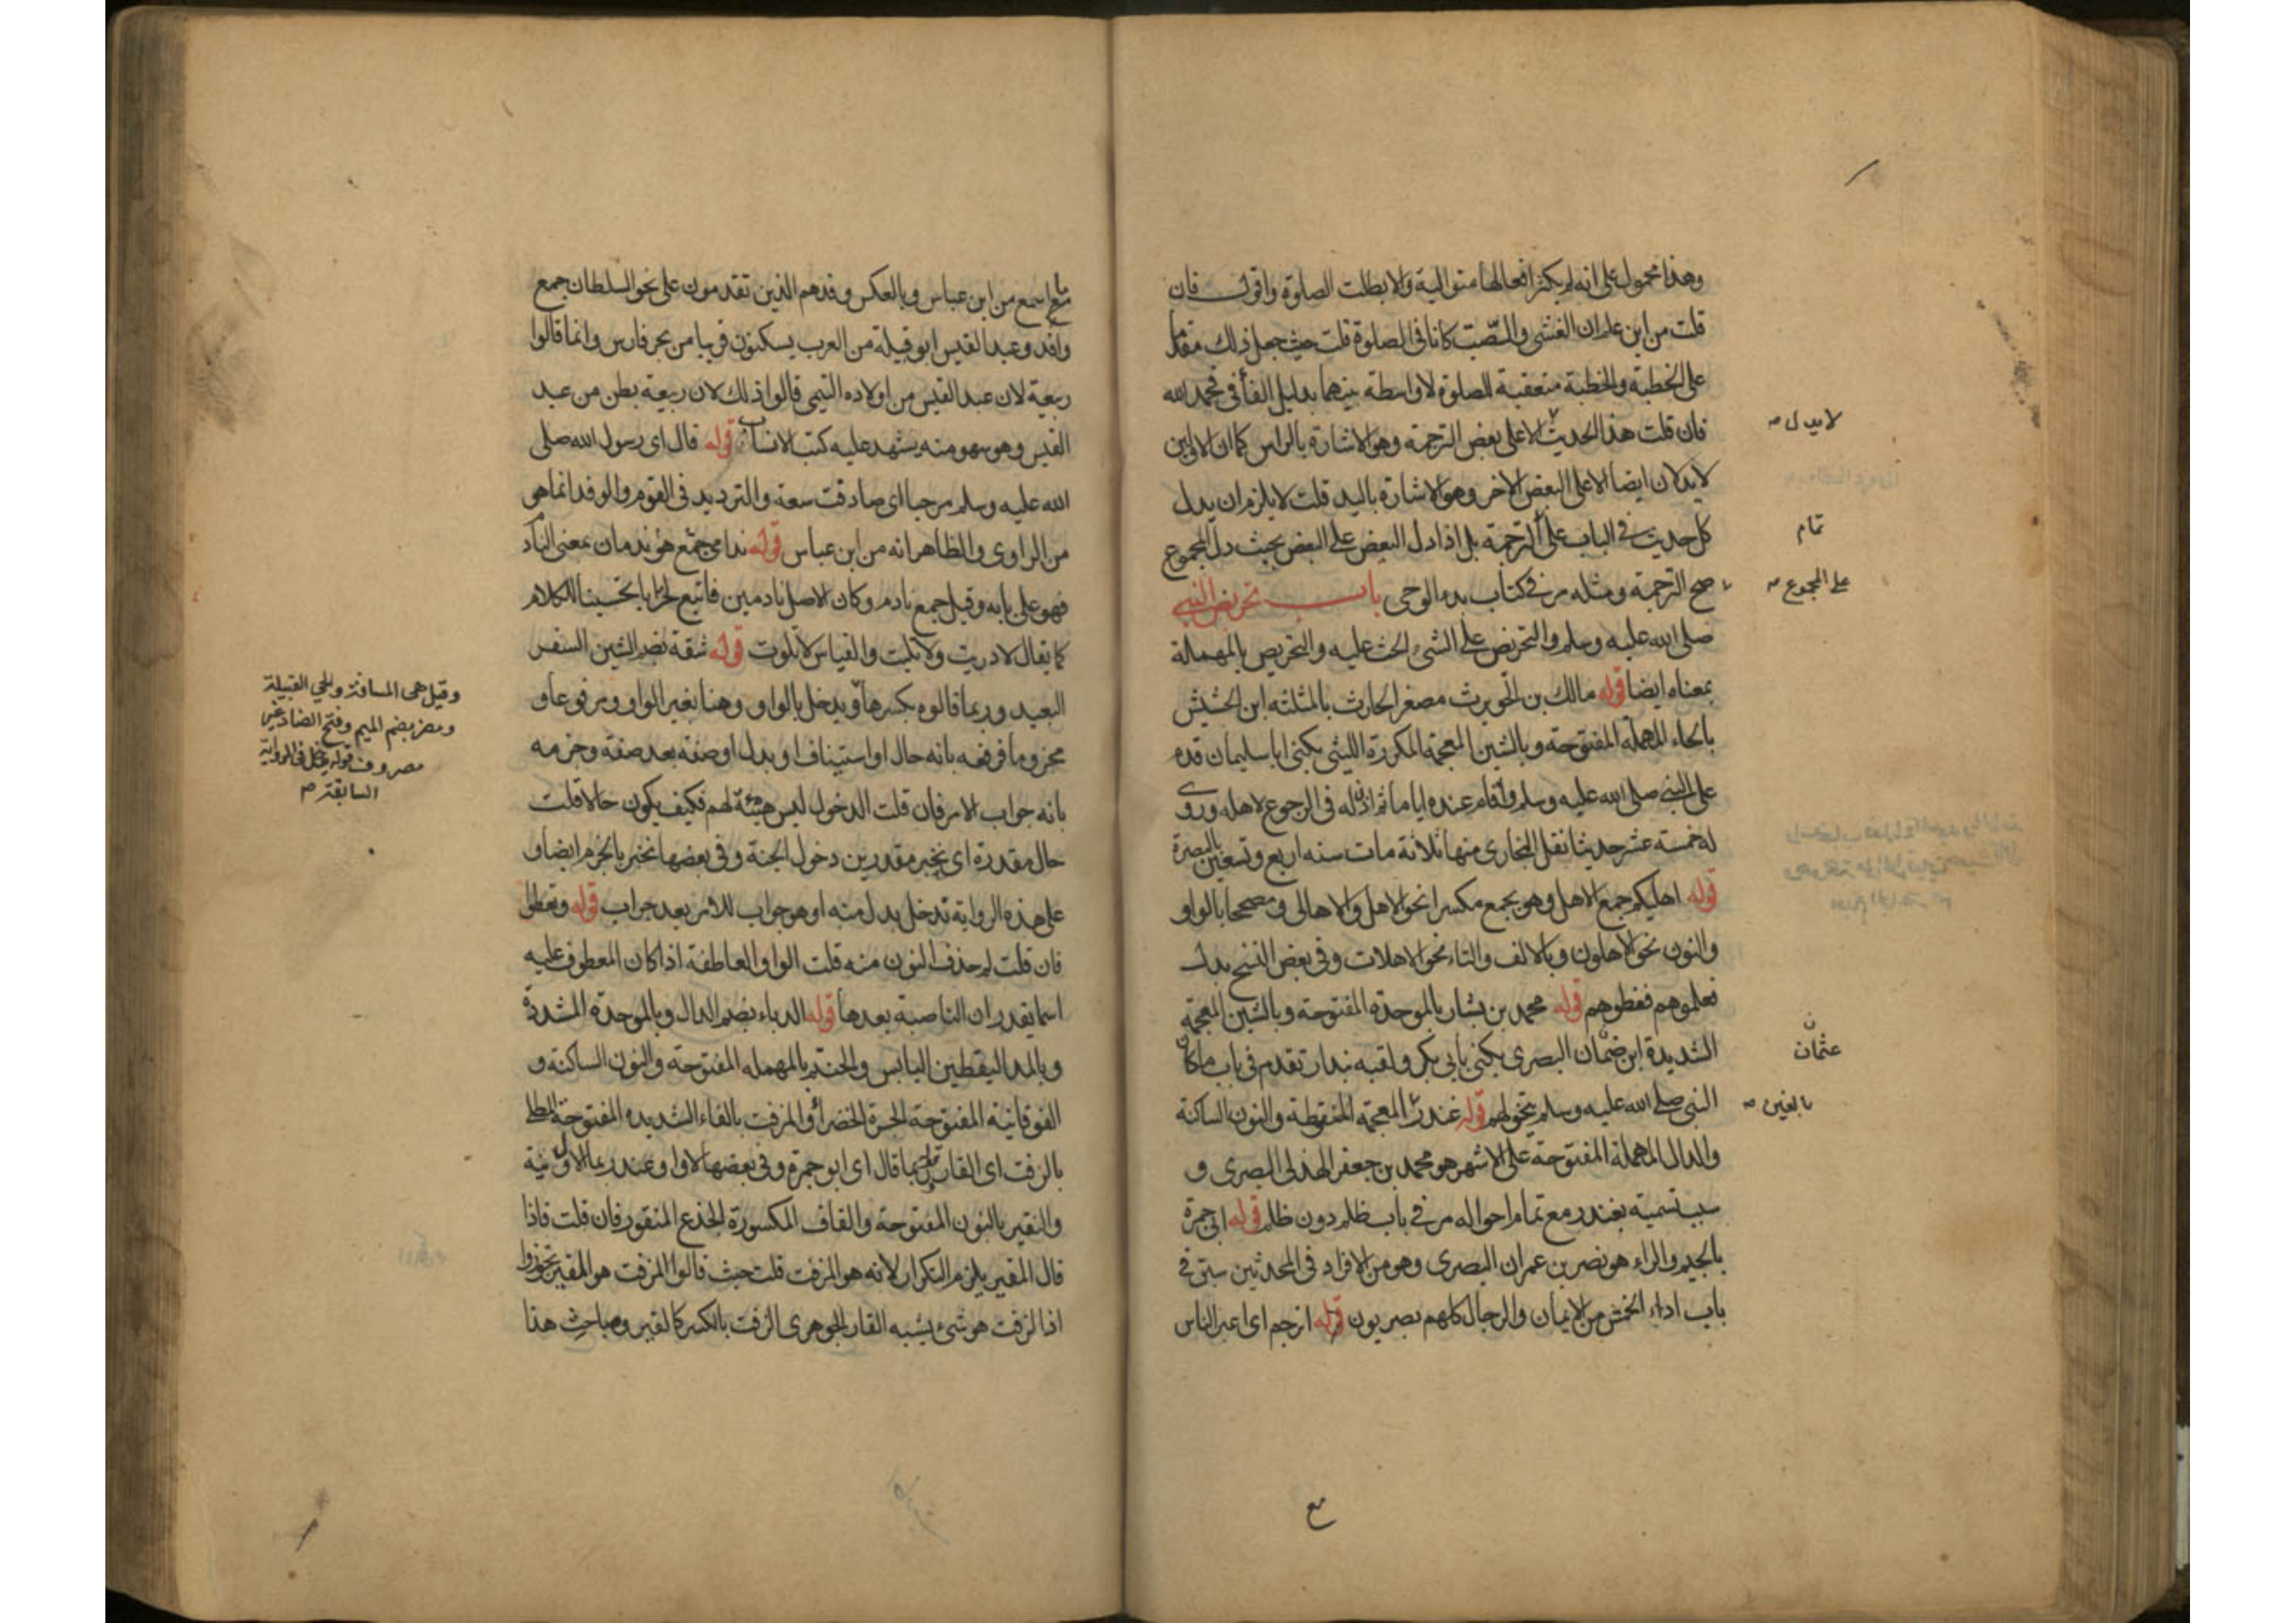 وهذا محمول على انه لم يكثر افعالها متوالية والا بطلت الصلوة واقول فان
قلت من اين علم ان الغشى والصب كانا فى الصلوة قلت حيث جعل ذلك مقدما
على الخطبة والخطبة متعقبة للصلوة لا واسطة بينهما بدليل الفأ فى فحمد الله
فان قلت هذا الحديث لا على بعض الترجمة وهو الاشارة بالراس كما ان الاولين
لا يدلان ايضا الا على البعض الاخر وهو الاشارة باليد قلت لا يلزم ان يدل
كل حديث فى الباب على الترجمة بل اذا دل البعض على البعض بحيث دل المجموع
صح الترجمة ومثله مر فى كتاب بدء الوحى باب تحريض النبى
صلى الله عليه وسلم والتحريض على الشىء الحث عليه والتحريص بالمهملة
بمعناه ايضا قوله مالك بن الحويرث مصغر الحارث بالمثلثه ابن الحشيش
بالحاء المهملة المفتوحة وبالشين المعجمة المكررة الليثى يكنى ابا سليمان قدم
على النبى صلى الله عليه وسلم واقام عنده اياما ثم اذن له فى الرجوع لاهله وروى
له خمسة عشر حديثا نقل البخارى منها ثلاثة مات سنه اربع وتسعين بالبصرة
قوله اهليكم جمع الاهل وهو يجمع مكسرا نحو الاهل والاهالى ومصححا بالواو
والنون نحو الاهلون وبالالف والتاء نحو الاهلات وفى بعض النسخ بدل
فعلموهم فعظوهم قوله محمد بن بشار بالموحدة المفتوحة وبالشين المعجمة
الشديدة ابن ضمان البصرى يكنى بابى بكر ولقبه بندار تقدم فى باب ما كان
النبى صلى الله عليه وسلم يتخولهم قوله غندر المعجمة المنقطة والنون الساكنة
والدال المهملة المفتوحة على الاشهر هو محمد بن جعفر الهذلى البصرى و
سبب تسميته بغندر مع تمام احواله مر فى باب ظلم دون ظلم قوله ابى جمرة
بالجيم والراء هو نصر بن عمران البصرى وهو من الافراد فى المحدثين سبق فى
باب اداء الخمس من الايمان والرجال كلهم بصريون قوله اترجم اى اعبر الناس
لا يدل صح
تمام
على المجموع صح
ن
عثمان
بالغين صح
مع
ما اسمع من ابن عباس وبالعكس وفد هم الذين تقدمون على نحو السلطان جمع
وافد وعبد القيس ابو قبيلة من العرب يسكنون قريبا من بحر فارس وانما قالوا
ربيعة لان عبد القيس من اولاده التيمى قالوا ذلك لان ربيعة بطن من عبد
القيس وهو سهو منه يشهد عليه كتب الانساب قوله قال اى رسول الله صلى
الله عليه وسلم مرحبا اى صادقت سعة والترديد فى القوم والوفد انما هى
من الراوى والظاهر انه من ابن عباس قوله ندامى جمع هو ندمان بمعنى النادم
فهو على بابه وقيل جمع نادم وكان الاصل نادمين فاتبع لخزايا تحسينا للكلام
كما يقال لا دريت ولا تليت والقياس لا تلوت قوله شقة بضم الشين السفر
البعيد وربما قالوه بكسرها ويدخل بالواو وهنا بغير الواو ومرفوعا و
مجزوما فرفعه بانه حال او استينافا وبدل او صفة بعد صفة وجزمه
بانه جواب الامر فان قلت الدخول ليس هيئة لهم فكيف يكون حالا قلت
حال مقدرة اى نخبر مقدرين دخول الجنة وفى بعضها نخبر بالجزم ايضا و
على هذه الرواية تدخل بدل منه او هو جواب للامر بعد جواب قوله وتعطوا
فان قلت لم حذف النون منه قلت الواو العاطفة اذا كان المعطوف عليه
اسما يقدر ان الناصبة بعدها قوله الدباء بضم الدال وبالموحدة المشددة
وبالمد اليقطين اليابس والحنتم بالمهمله المفتوحة والنون الساكنة و
الفوقانية المفتوحة الجرة الخضرأ والمزفت بالفاء الشديده المفتوحة المطلى
بالزفت اى القار وربما قال اى ابو جمرة وفى بعضها لا واو عند ربما الاول نية
والنقير بالنون المفتوحة والقاف المكسورة الجذع المنقور فان قلت فاذا
قال المقير يلزم التكرار لانه هو المزفت قلت حيث قالوا المزفت هو المقير تجوزوا
اذ الزفت هو شىء يشبه القار الجوهرى الزفت بالكسر كالقير ومباحث هذا
وقيل هى المسافة والحى القبيلة
ومضر بضم الميم وفتح الضاد غير
مصروف قوله يدخل فى الرواية
السابقة صح